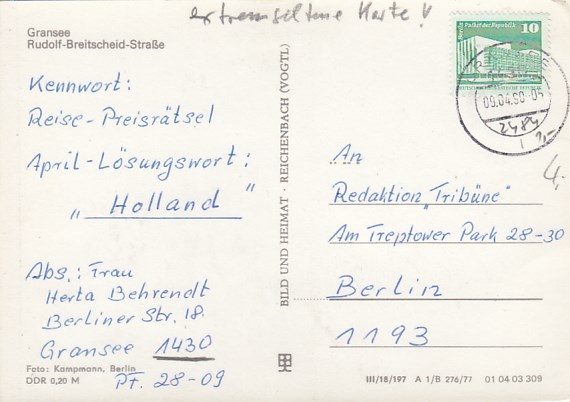 extrem seltene Karte!
Gransee
Rudolf-Breitscheid-Straße
Kennwort:
Reise-Preisrätsel
April-Lösungswort:
"Holland"
Abs.: Frau
Herta Behrendt
Berliner Str. 18.
Gransee 1430
PF. 28-09
Foto: Kampmann, Berlin
DDR 0,20 M
BILD UND HEIMAT · REICHENBACH (VOGTL)
10
09.04.90-04
2484
An
Redaktion "Tribüne"
Am Treptower Park 28-30
Berlin
1193
III/18/197 A 1/B 276/77 01 04 03 309